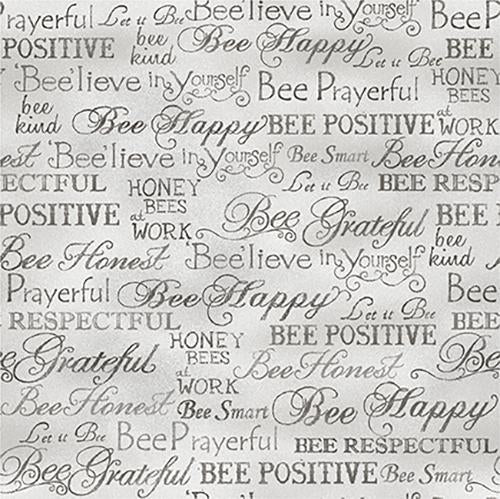 Prayerful Let it Bee 'Bee'lieve in Yourself Bee P
POSITIVE bee kind Bee Happy Let it Bee BEE
'Bee'lieve in Yourself Bee Prayerful HONEY BEES
bee kind Bee Happy BEE POSITIVE at WORK
est 'Bee'lieve in Yourself Bee Smart Bee Hon
ECTFUL HONEY BEES Let it Bee BEE RESP
POSITIVE at WORK Bee Grateful BEE
Bee Honest 'Bee'lieve in Yourself bee kind
Prayerful Bee Happy Let it Bee Bee
RESPECTFUL HONEY BEES BEE POSITIVE BEE
e Grateful at WORK Bee Honest Be
Bee Honest Bee Smart Bee Happy
Let it Bee Bee Prayerful BEE RESPECTFUL
Bee Grateful BEE POSITIVE Bee Smart